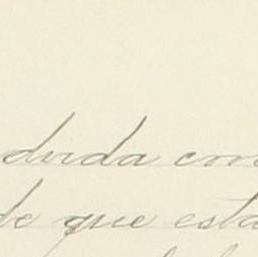 duda con
de que esta